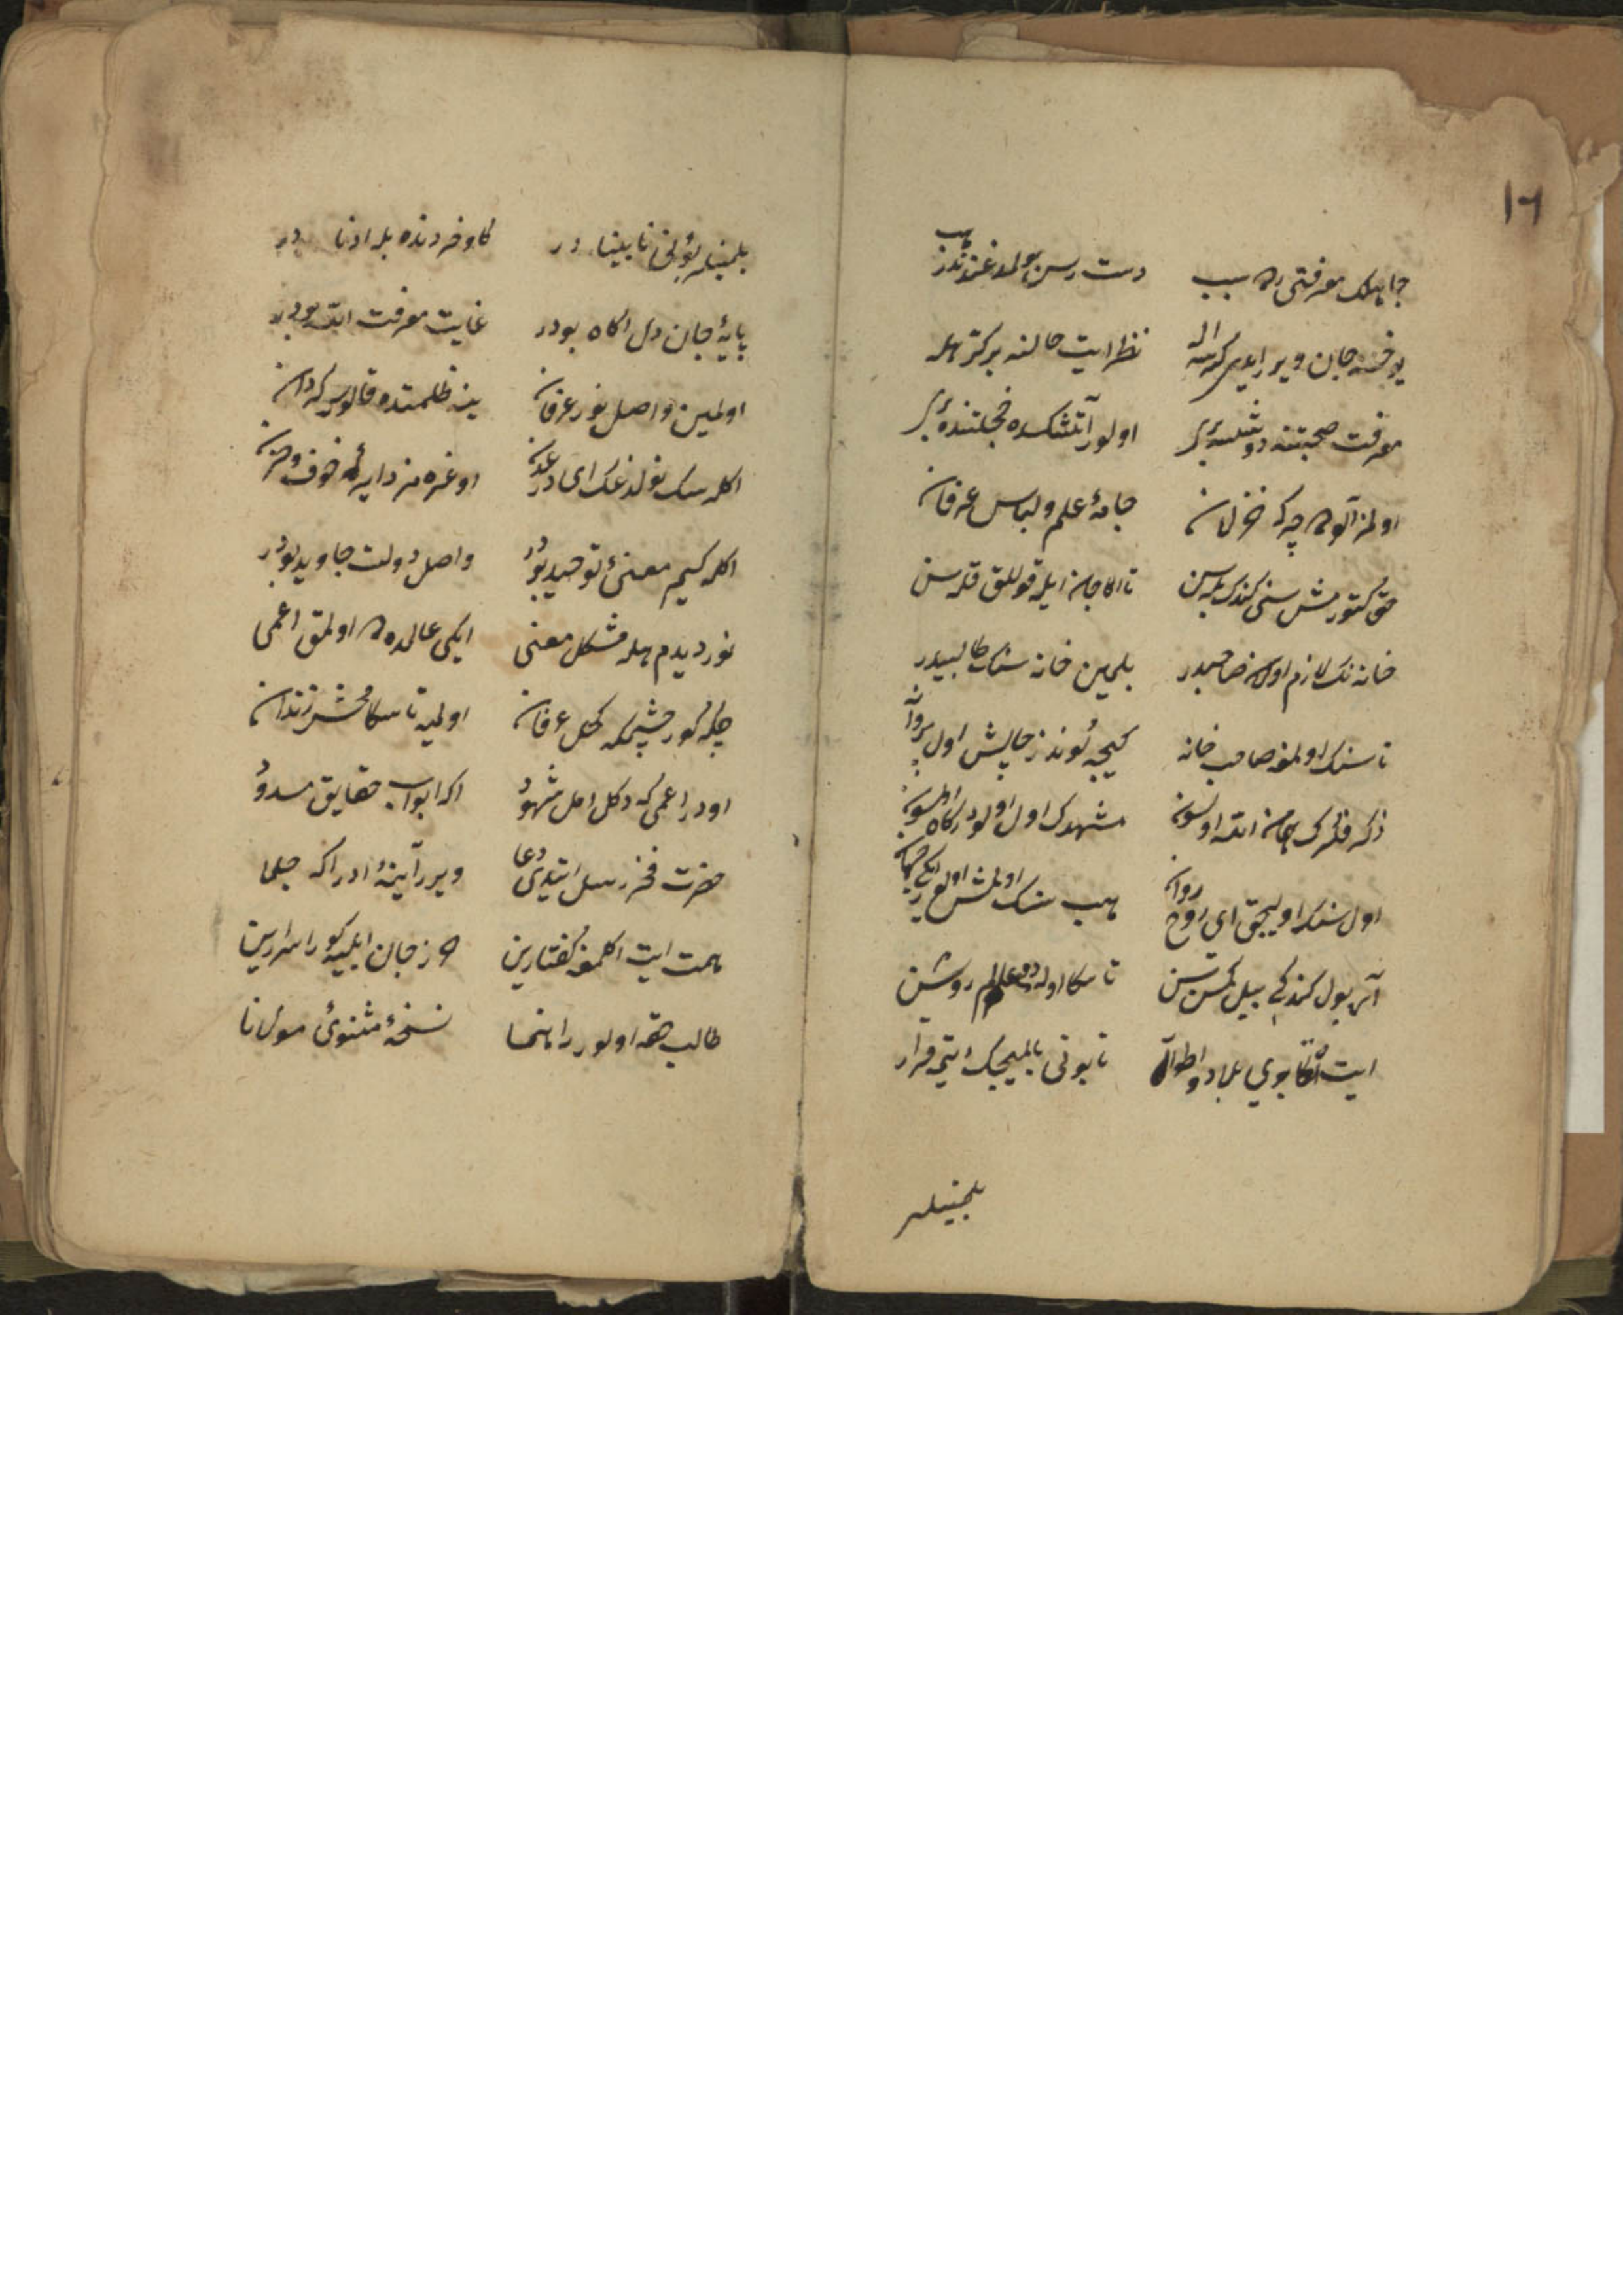 ١٦
جاهلك معرفتى سبب دست رس بولمدغندندر هپ
يوخسه جان ويرر ايدى كرسه اله نظر ايت حالنه بر كز هله
معرفت صحبتنه دوشسه بر اولور آتشكده خجلتنده
اولمز آلوده چرك خزلان جامهٔ علم ولباس عرفان
حق كتورمش سنى كندك بيله سن تا اكا جان ايله قوللق قله سن
خانه نك لازم اولان صاحبيدر بلمين خانه سنك طالبيدر
تا سنك اولمغه صاحب خانه كيجه كوندز چالش اول پروانه
ذكر فكرك همان الله اولسون مشهدك اول اولو دركاه اولسون
اول سنك اوليجق اى روح روان هپ سنك اولمش اولور ايكى جهان
آنى بول كندكى بيل كيمسن سن تا سكا اوله دو عالم روشن
ايت تكاپوى بلاد واطوار تا بونى بلميجك ايتمه قرار
بلمينلر
بلمينلر بونى نابينادر كاو خردنده بله ادنادر
پايهٔ جان دل آكاه بودر غايت معرفت الله بودر
اولمين واصل نور عرفان ينه ظلمتده قالور سركردان
اكله سك نولدغك اى در عدن اوغره مز دايره خوف وحزن
اكله كيم معنئ توحيد بودر واصل دولت جاويد بودر
نور ديدم هله مشكل معنى ايكى عالمده اولمق اعمى
چكه كور چشمكه كحل عرفان اولميه تا سكا محشر زندان
اودر اعمى كه دكل اهل شهود اكا ابواب حقايق مسدود
حضرت فخر رسل ايتدى دعا ويرر آيينهٔ ادراكه جلا
همت ايت اكلمغه كفتارين حرز جان ايليه كور اسرارين
طالب حقه اولور راهنما نسخهٔ مثنوئ مولانا